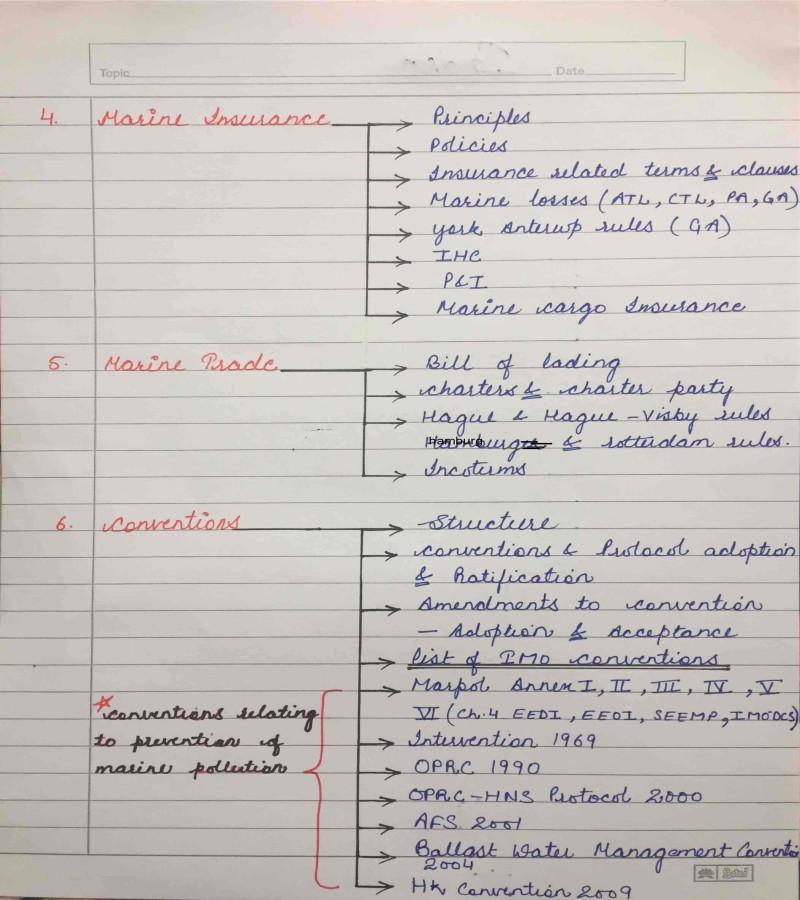 Topic Date
4. Marine Insurance Principles
Policies
Insurance related terms & clauses
Marine losses (ATL, CTL, PA, GA)
york Anterwp rules (GA)
IHC
P&I
Marine cargo Insurance
5. Marine Trade Bill of lading
charters & charter party
Hague & Hague - Visby rules
Hamburg & rotterdam rules.
Incoterms
6. Conventions Structure
conventions & Protocol adoption
& Ratification
Amendments to convention
- Adoption & Acceptance
List of IMO conventions
Marpol Annex I, II, III, IV, V
VI (Ch.4 EEDI, EEOI, SEEMP, IMODCS)
*conventions relating
to prevention of
marine pollution
Intervention 1969
OPRC 1990
OPRC-HNS Protocol 2000
AFS 2001
Ballast Water Management Conventio
2004
HK Convention 2009